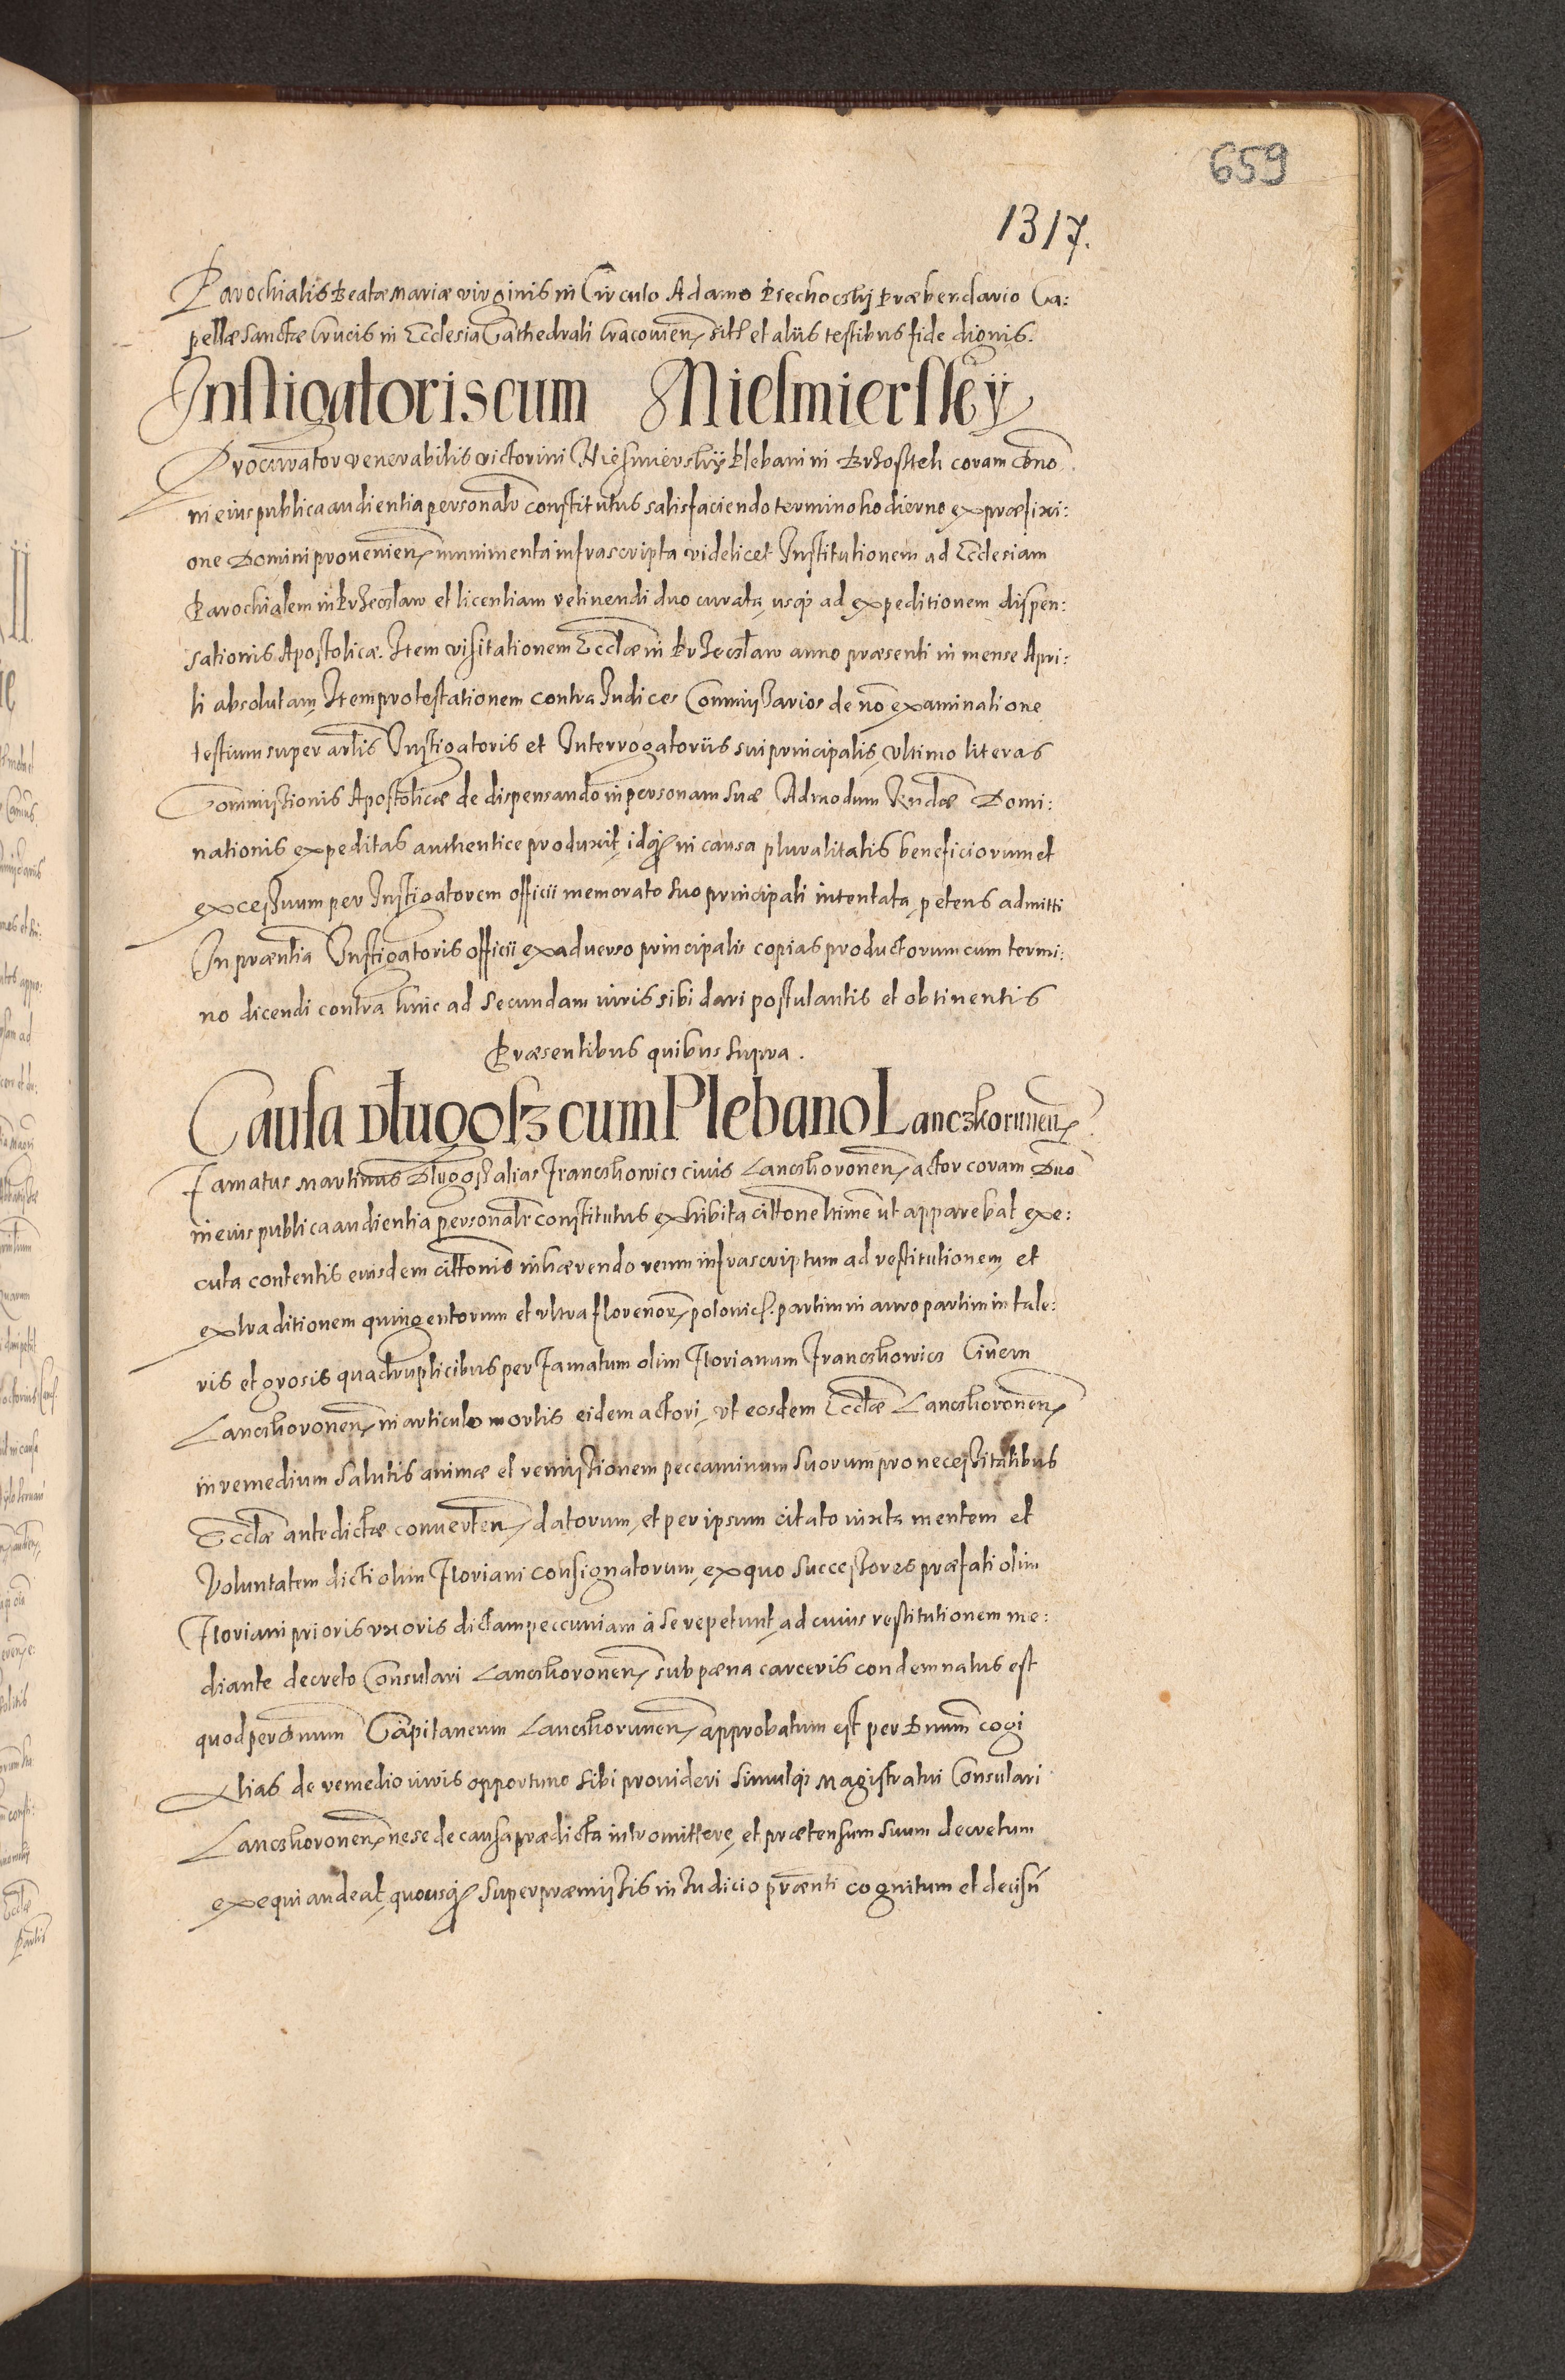 659
1317.
Parochialis Beatæ Mariæ virginis in Circulo Adamo Piechoczkij Præbendario Ca:
pellæ Sanctæ Crucis in Ecclesia Cathedrali Cracouien̄ sitꝭ et aliis testibus fide dignis.
Instigatoris cum Niesmierskÿ
Procurator venerabilis victorini Niesmierskÿ Plebani in Brzostek coram Dno
in eius publica audientia personalr̄ constitutus satisfaciendo termino hodierno ex præfixi:
one Domini prouenien̄ munimenta infrascripta videlicet Institutionem ad Ecclesiam
Parochialem in Brzeczlaw et licentiam retinendi duo curata, usq̧ ad expeditionem dispen:
sationis Apostolicæ. Item visitationem Eccl̄æ in Brzeczlaw anno præsenti in mense Apri:
li absolutam, Item protestationem contra Iudices Commissarios de nō examinatione
testium super artl̄is Instigatoris et Interrogatoriis sui principalis, vltimo literas
Commissionis Apostolicæ de dispensando in personam suæ Admodum Rndæ Domi:
nationis expeditas authentice produxit, idq̧ in causa pluralitatis beneficiorum et
excessuum per Instigatorem officii memorato suo principali intentata, petens admitti
In præntia Instigatoris officii ex aduerso principalis copias productorum cum termi:
no dicendi contra hinc ad secundam iuris sibi dari postulantis et obtinentis
Præsentibus quibus supra.
Causa Długosz cum Plebano Lanczkorunen̄
Famatus Martinus Długosz alias Franczkowicz ciuis Lanczkoronen̄ actor coram Dno
in eius publica audientia personalr̄ constitutus exhibita citt̄one ltime ut apparebat exe:
cuta contentis eiusdem citt̄onis inhærendo reum infrascriptum ad restitutionem et
extraditionem quingentorum et vltra florenor̄ polonicꝭ. partim in auro partim in tale:
ris et grosis quadruplicibus per Famatum olim Florianum Franczkowicz Ciuem
Lanczkoronen̄ in articulo mortis eidem actori, vt eosdem Eccl̄æ Lanczkoronen̄
in remedium salutis animæ et remissionem peccaminum suorum pro necessitatibus
Eccl̄æ antedictæ conuerten̄ datorum, et per ipsum citato iuxta mentem et
voluntatem dicti olim Floriani consignatorum, ex quo successores præfati olim
Floriani prioris vxoris dictam peccuniam à se repetunt, ad cuius restitutionem me:
diante decreto Consulari Lanczkoronen̄ sub pæna carceris condemnatus est
quod per Dnum Capitaneum Lanczkorunen̄ approbatum est per Dnum cogi
Alias de remedio iuris opportuno sibi prouideri simulq̧ Magistratui Consulari
Lanczkoronen̄ ne se de causa prædicta intromittere, et prætensum suum decretum
exequi audeat, quousq̧ super præmissis in Iudicio prænti cognitum et decisū